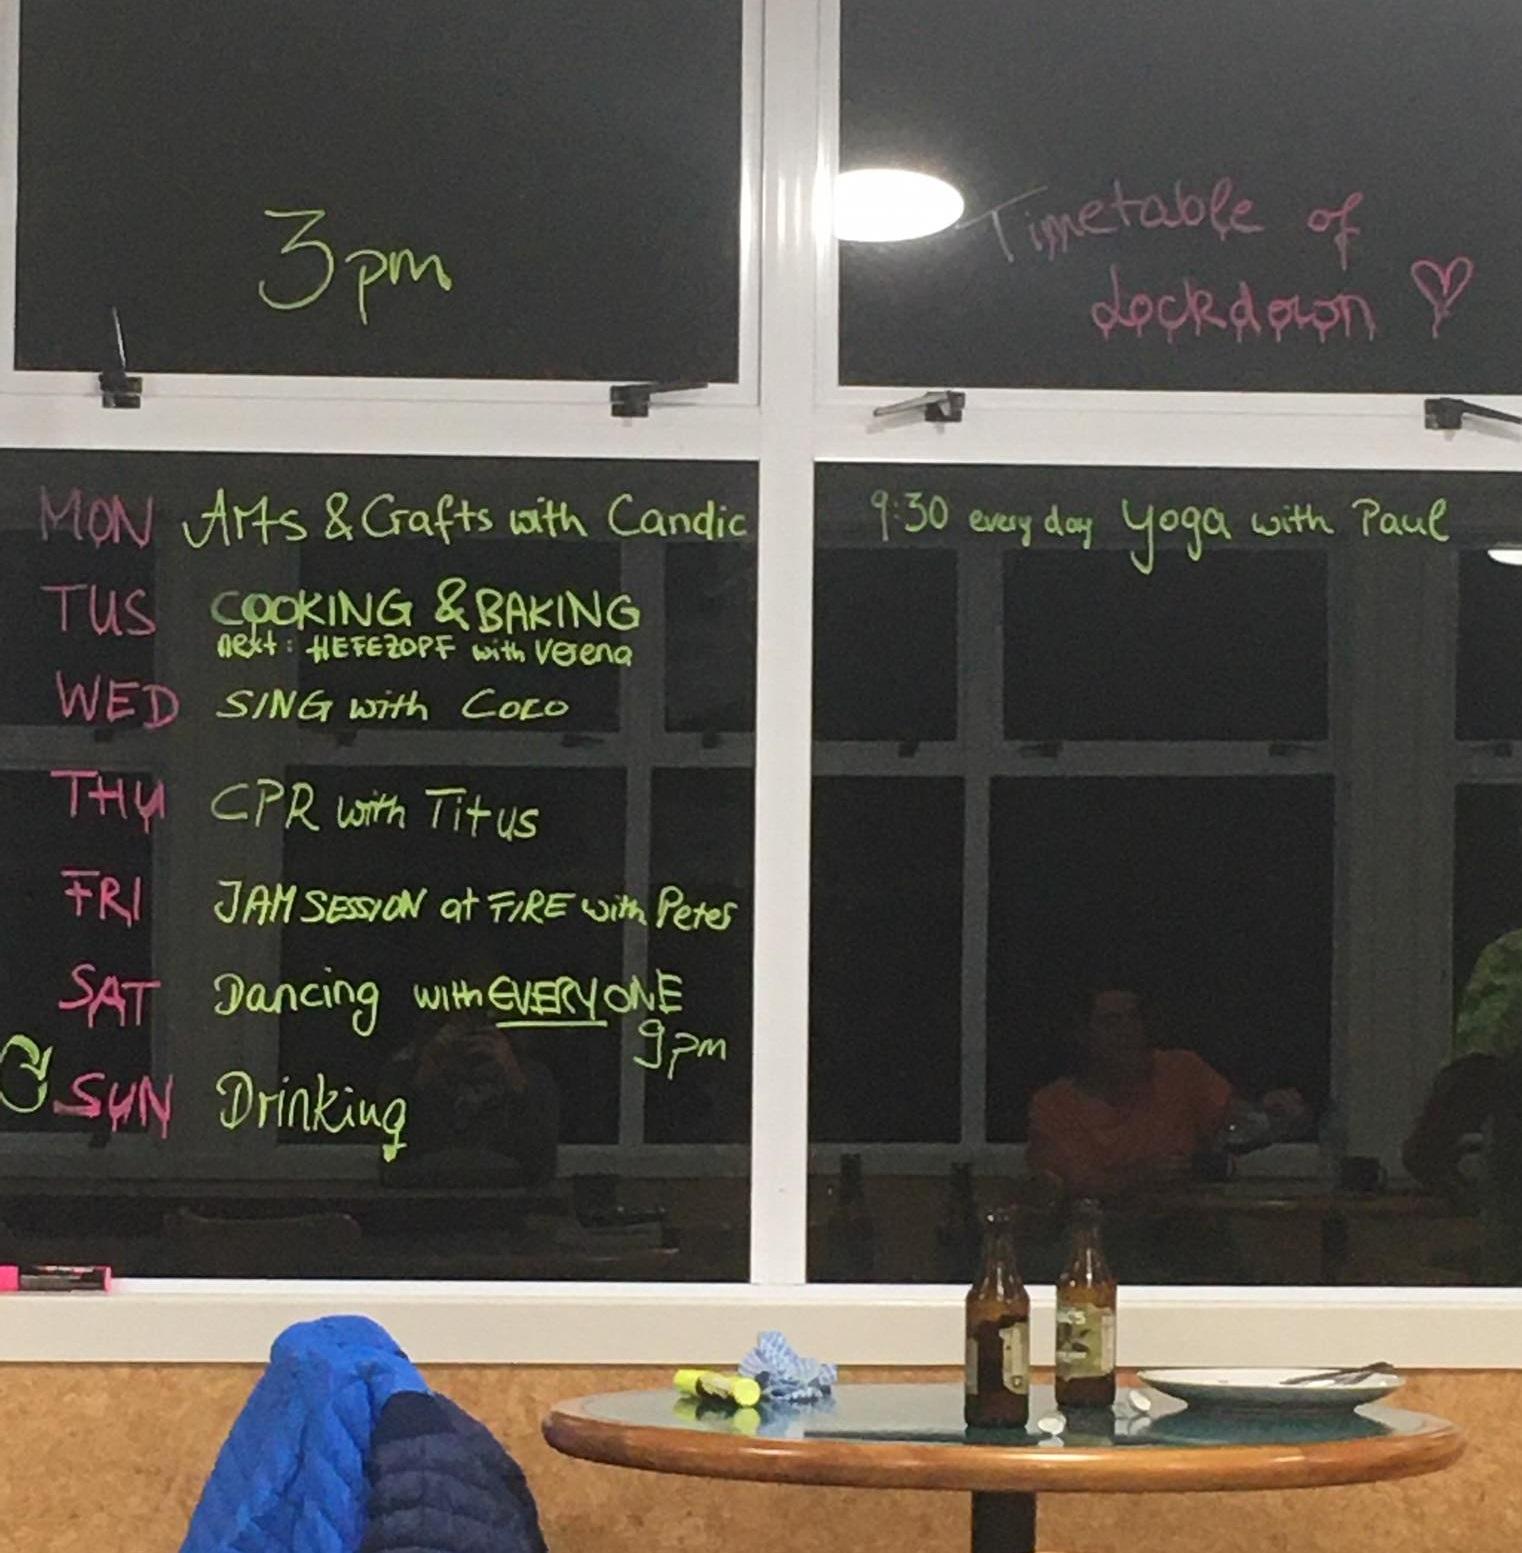 3pm
Timetable of
Lockdown
MON Arts & Crafts with Candic
TUS COOKING & BAKING
next: HEFEZOPF with Verena
WED SING with Coco
THU CPR with Titus
FRI JAM SESSION at FIRE with Peter
SAT Dancing with EVERYONE
9pm
SUN Drinking
9:30 every day Yoga with Paul